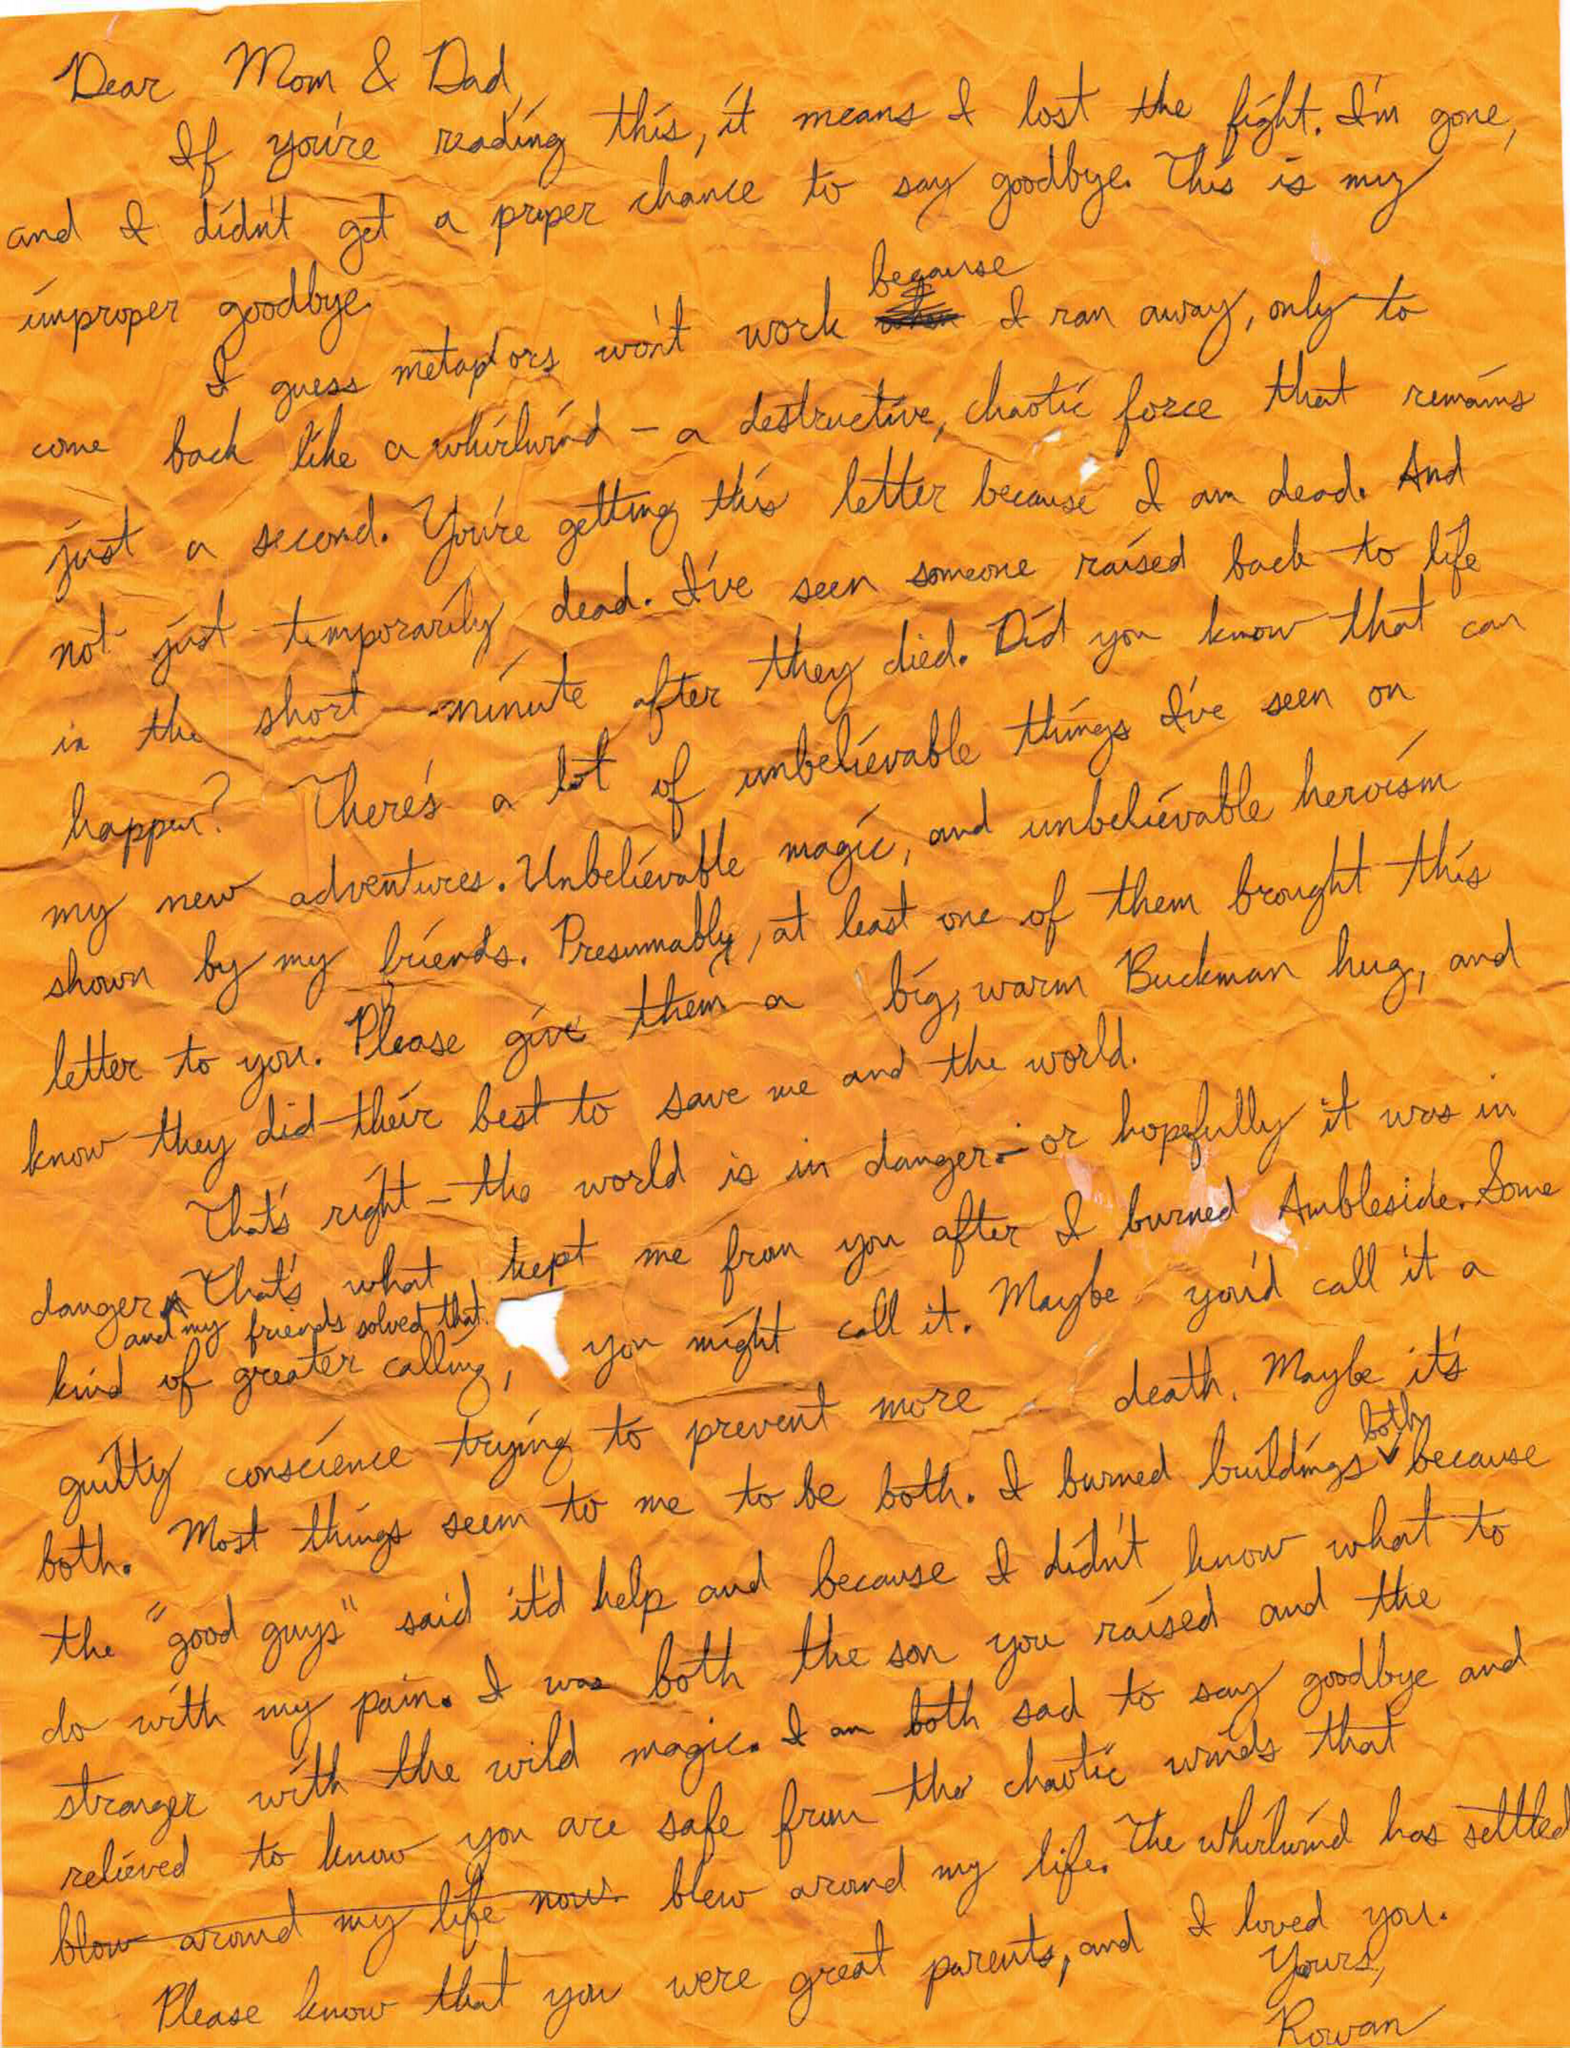 Dear Mom & Dad,
If you're reading this, it means I lost the fight. I'm gone,
and I didn't get a proper chance to say goodbye. This is my
improper goodbye.
I guess metaphors won't work because I ran away, only to
come back like a whirlwind – a destructive, chaotic force that remains
just a second. You're getting this letter because I am dead. And
not just temporarily dead. I've seen someone raised back to life
in the short minute after they died. Did you know that can
happen? There's a lot of unbelievable things I've seen on
my new adventures. Unbelievable magic, and unbelievable heroism
shown by my friends. Presumably, at least one of them brought this
letter to you. Please give them a big, warm Buckman hug, and
know they did their best to save me and the world.
That's right – the world is in danger – or hopefully it was in
danger and my friends solved that. That's what kept me from you after I burned Ambleside. Some
kind of greater calling, you might call it. Maybe you'd call it a
guilty conscience trying to prevent more death. Maybe it's
both. Most things seem to me to be both. I burned buildings both because
the "good guys" said it'd help and because I didn't know what to
do with my pain. I was both the son you raised and the
stranger with the wild magic. I am both sad to say goodbye and
relieved to know you are safe from the chaotic winds that
blow around my life now blew around my life. The whirlwind has settled
Please know that you were great parents, and I loved you.
Yours,
Rowan